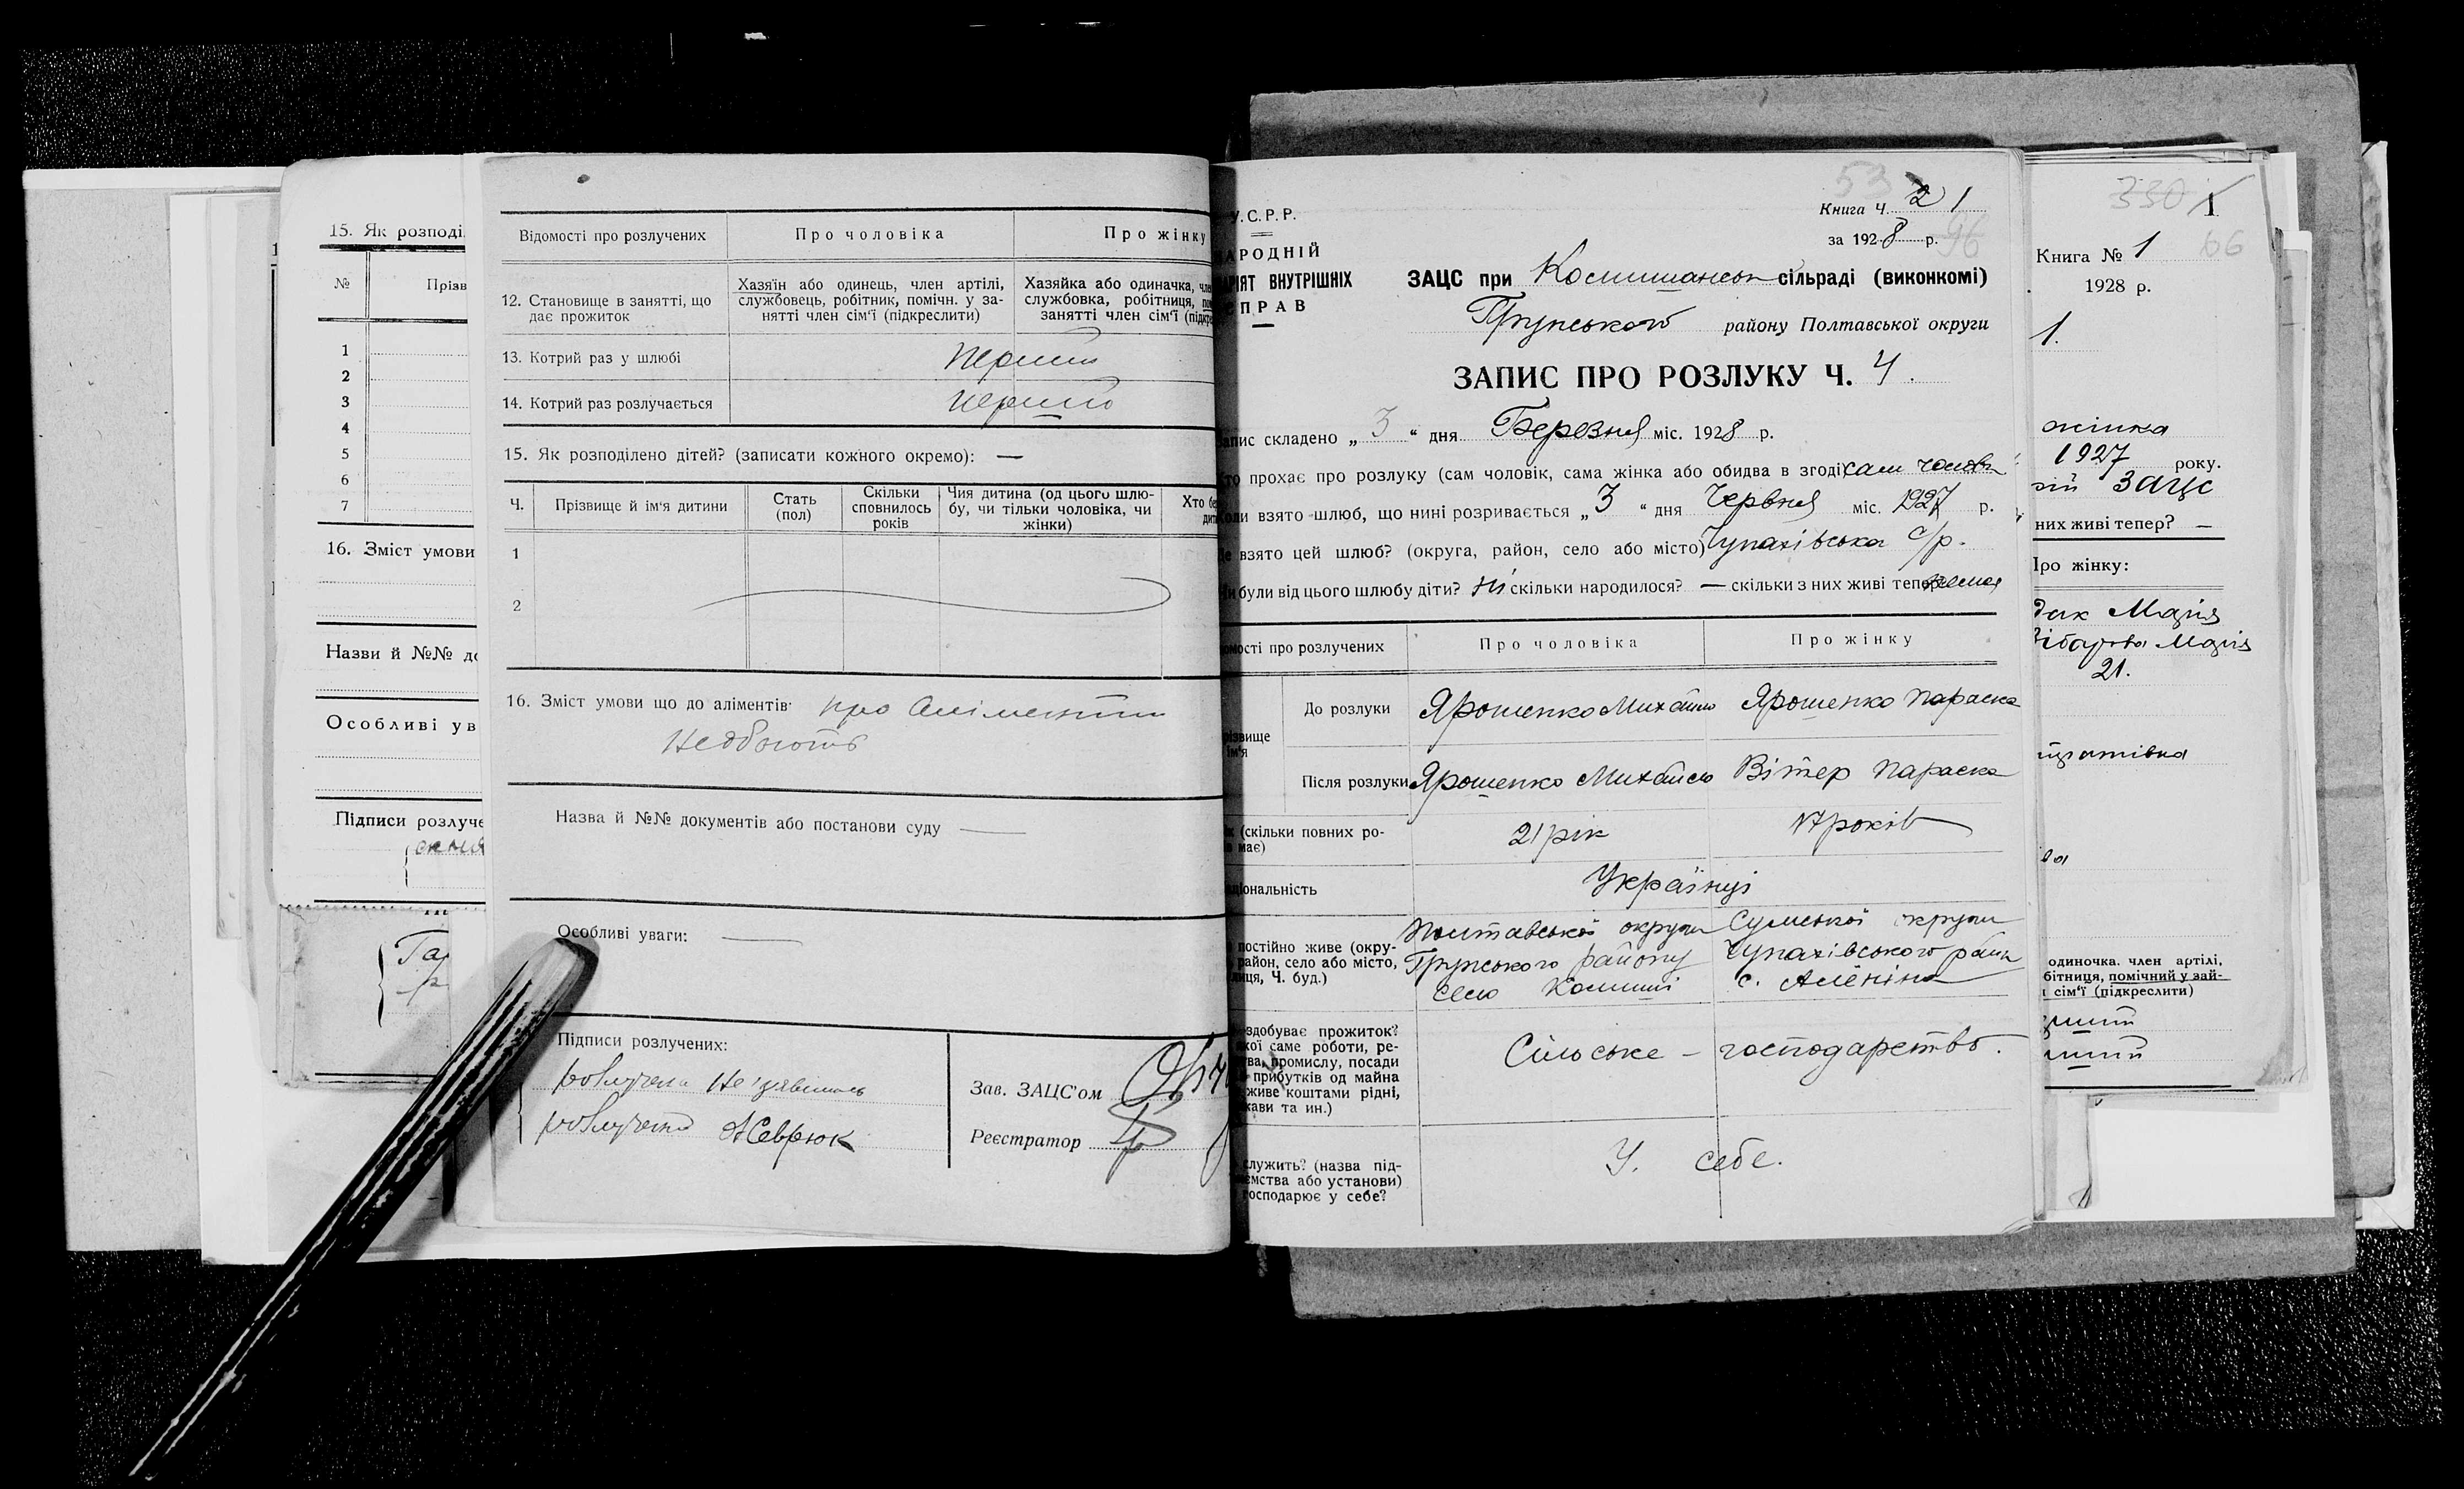 15. Як розподі
№
Прізв
1
2
3
4
5
6
7
16. Зміст умови
Назви й №№ до
Особливі ув
Підписи розлуче
Відомості про розлучених
Про чоловіка
Про жінку
12. Становище в занятті, що
дає прожиток
Хазяїн або одинець, член артілі,
службовець, робітник, помічн. у за-
нятті член сім'ї (підкреслити)
Хазяйка або одиначка, чле
службовка, робітниця, по
занятті член сім'ї (підкре
13. Котрий раз у шлюбі
перший
14. Котрий раз розлучається
15. Як розподілено дітей? (записати кожного окремо): —
Ч.
Прізвище й ім'я дитини
Стать
(пол)
Скільки
сповнилось
років
Чия дитина (од цього шлю-
бу, чи тільки чоловіка, чи
жінки)
Хто бе
дит
1
2
16. Зміст умови що до аліментів: про Аліменти
Назва й №№ документів або постанови суду —
Особливі уваги: —
Підписи розлучених:
Зав. ЗАЦС'ом
Реєстратор
У.С.Р.Р.
АРОДНІЙ
АРІЯТ ВНУТРІШНІХ
СПРАВ
53
Книга Ч. 21
за 1928 р.
96
ЗАЦС при сільраді (виконкомі)
Грунського району Полтавської округи
ЗАПИС ПРО РОЗЛУКУ Ч. 4.
апис складено „ 3 “ дня Березня міс. 1928 р.
то прохає про розлуку (сам чоловік, сама жінка або обидва в згоді) сам
оли взято шлюб, що нині розривається „ 3 “ дня Червня міс. 1927 р.
е взято цей шлюб? (округа, район, село або місто) Чупахівська с/р.
и були від цього шлюбу діти? Ні скільки народилося? — скільки з них живі тепер немає
омості про розлучених
Про чоловіка
Про жінку
різвище
ім'я
До розлуки
Ярошенко Михайло
Ярошенко Параска
Після розлуки
Ярошенко Михайло
Вітер Параска
к (скільки повних ро-
має)
21 рік
17 років
ціональність
Українці
постійно живе (окру-
район, село або місто,
лиця, Ч. буд.)
Полтавської округи
Грунського району
село Комиші
Сумської округи
Чупахівського райн
с. Алёніно
здобуває прожиток?
якої саме роботи, ре-
тва, промислу, посади
прибутків од майна
живе коштами рідні,
жави та ин.)
Сільське - господарство.
служить? (назва під-
ємства або установи)
господарює у себе?
У себе.
330
1
Книга № 1
66
1928 р.
1.
жінка
1927 року.
ЗАЦС
них живі тепер? —
Про жінку:
Марія
Марія
21.
одиночка, член артілі,
бітниця, помічний у зай-
і сім'ї (підкреслити)